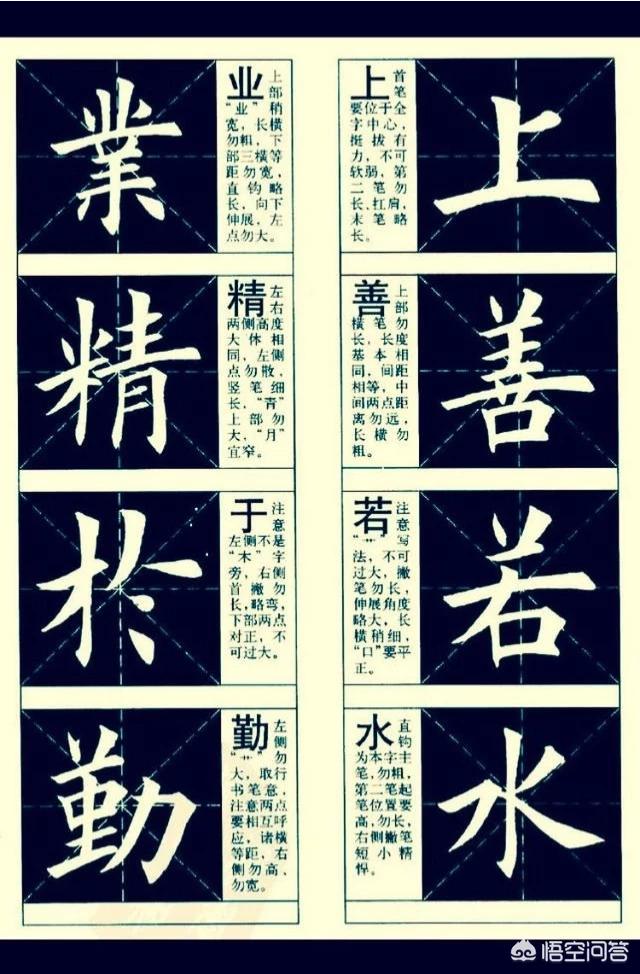 上
上
首笔
要位于全
字中心，
挺拔有
力，不可
软弱，第
二笔勿
长，扛肩，
末笔略
长。
善
善
上部
横笔勿
长，长度
基本相
同，间距
相等，中
间两点距
离勿远，
长横勿
粗。
若
若
注意
“艹”写
法，不可
过大，撇
笔勿长，
伸展角度
略大，长
横稍细，
“口”要平
正。
水
水
直钩
为本字主
笔，勿粗，
第二笔起
笔位置要
高，勿长，
右侧撇笔
短小精
悍。
業
业
上部
“业”稍
宽，长横
勿粗，下
部三横等
距勿宽，
直钩略
长，向下
伸展，左
点勿大。
精
精
左右
两侧高度
大体相
同，左侧
点勿散，
竖笔细
长，“青”
上部勿
大，“月”
宜窄。
於
于
注意
左侧不是
“木”字
旁，右侧
首撇勿
长，略弯，
下部两点
对正，不
可过大。
勤
勤
左侧
“艹”勿
大，取行
书笔意，
注意两点
要相互呼
应，诸横
等距，右
侧勿高、
勿宽。
悟空问答